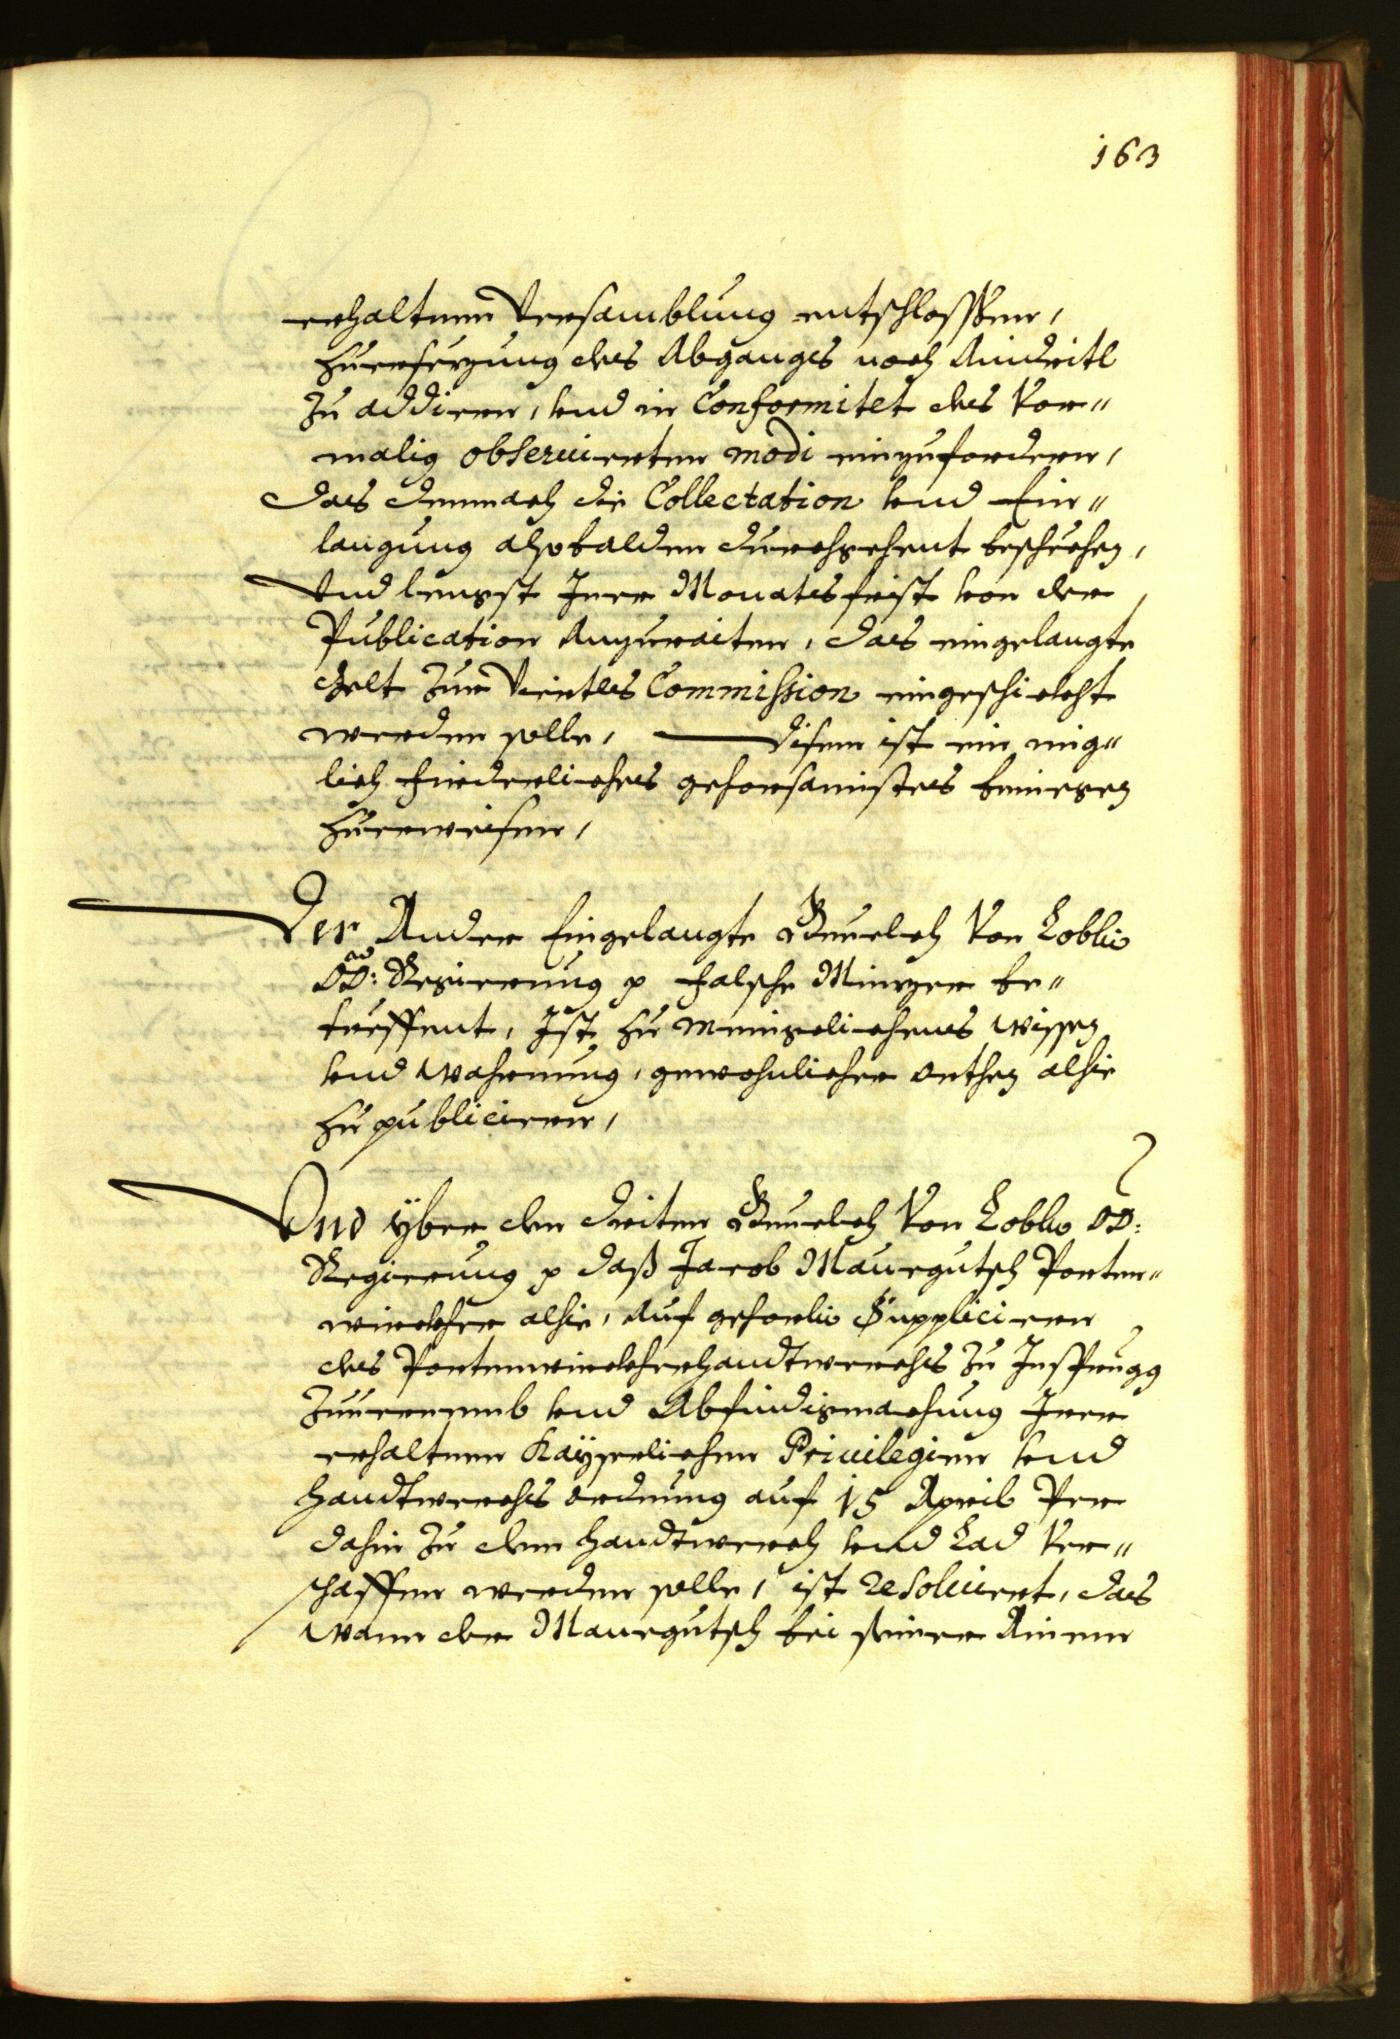 163
erhaltnen Versamblung entschlossen,
zuersezung des Abganges noch Ainvirtl
zu addirn, vnd in Conformitet des vor-
malig obseruierten modi einzufordern,
das demnach die Collectation vnd Ein-
langung alsobalden durchgehent beschechen,
Vnd lengst Inner Monatsfrist von der
Publication anzuraiten, das eingelangte
Gelt zur Commission eingeschickht
werden solle, disem ist ein mig-
lich fürderliches gehorsamistes beniegen
zuerweisen,
Der Ander Eingelangte Beuelch von Lobl:
OÖ: Regierung p falsche Minzer be-
treffent, Ist zu menigeliches wissen
vnd wahrnung, gewohnlicher orthen alhie
zu publiciern,
Vnd yber den driten Beuelch von Lobl: OÖ:
Regierung p daß Jacob Maurgutsch Porten-
würckher alhie, auf gehorl: Supplicieren
des Portenwürckherhandtwerchs zu Insprugg
vnd Abfindigmachung Irer
erhaltnen Kayserlichen Priuilegien vnd
Handtwerchs ordnung auf 15 April Per
dahin zu dem Handtwerch vnd Lad ver-
schaffen werden solle, ist resoluiert, das
wann der Maurgutsch bei seiner Ainem